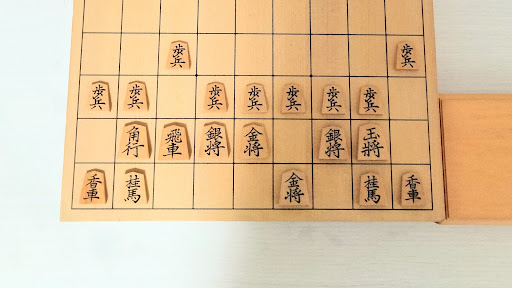 歩兵 歩兵
歩兵 歩兵 歩兵 歩兵 歩兵 歩兵 歩兵
角行 飛車 銀将 金将 銀将 玉将
香車 桂馬 金将 桂馬 香車